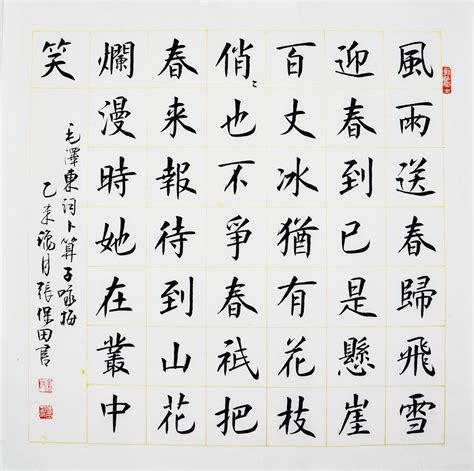 風雨送春歸飛雪
迎春到已是懸崖
百丈冰猶有花枝
俏〻也不爭春祇把
春來報待到山花
爛漫時她在叢中
笑
毛澤東词卜算子咏梅
乙未月張保田書